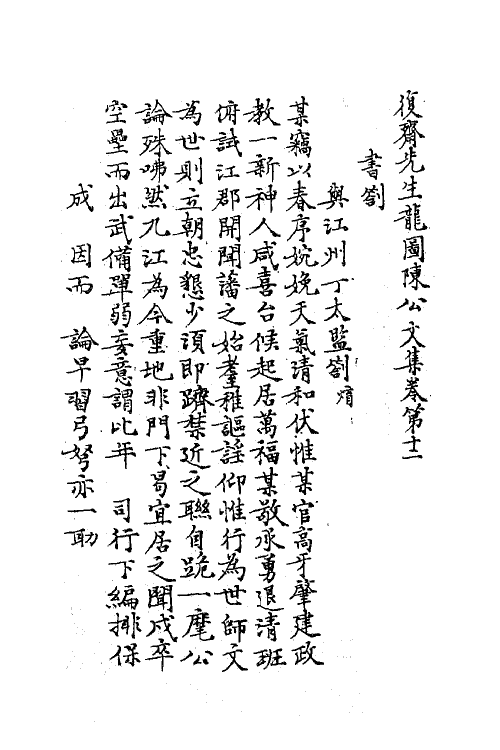 復齋先生龍圖陳公文集卷第十二
書劄
與江州丁太監劄焴
某竊以春序婉娩天氣清和伏惟某官高牙肇建政
教一新神人咸喜台候起居萬福某敬承勇退清班
俯試江郡開閫藩之始耋稚謳謡仰惟行為世師文
為世則立朝忠懇少須即躋禁近之聯自詭一麾公
論殊咈然九江為今重地非門下曷宜居之聞戍卒
空壘而出武備單弱妄意謂比年 司行下編排保
成 因而 論早習弓弩亦一助